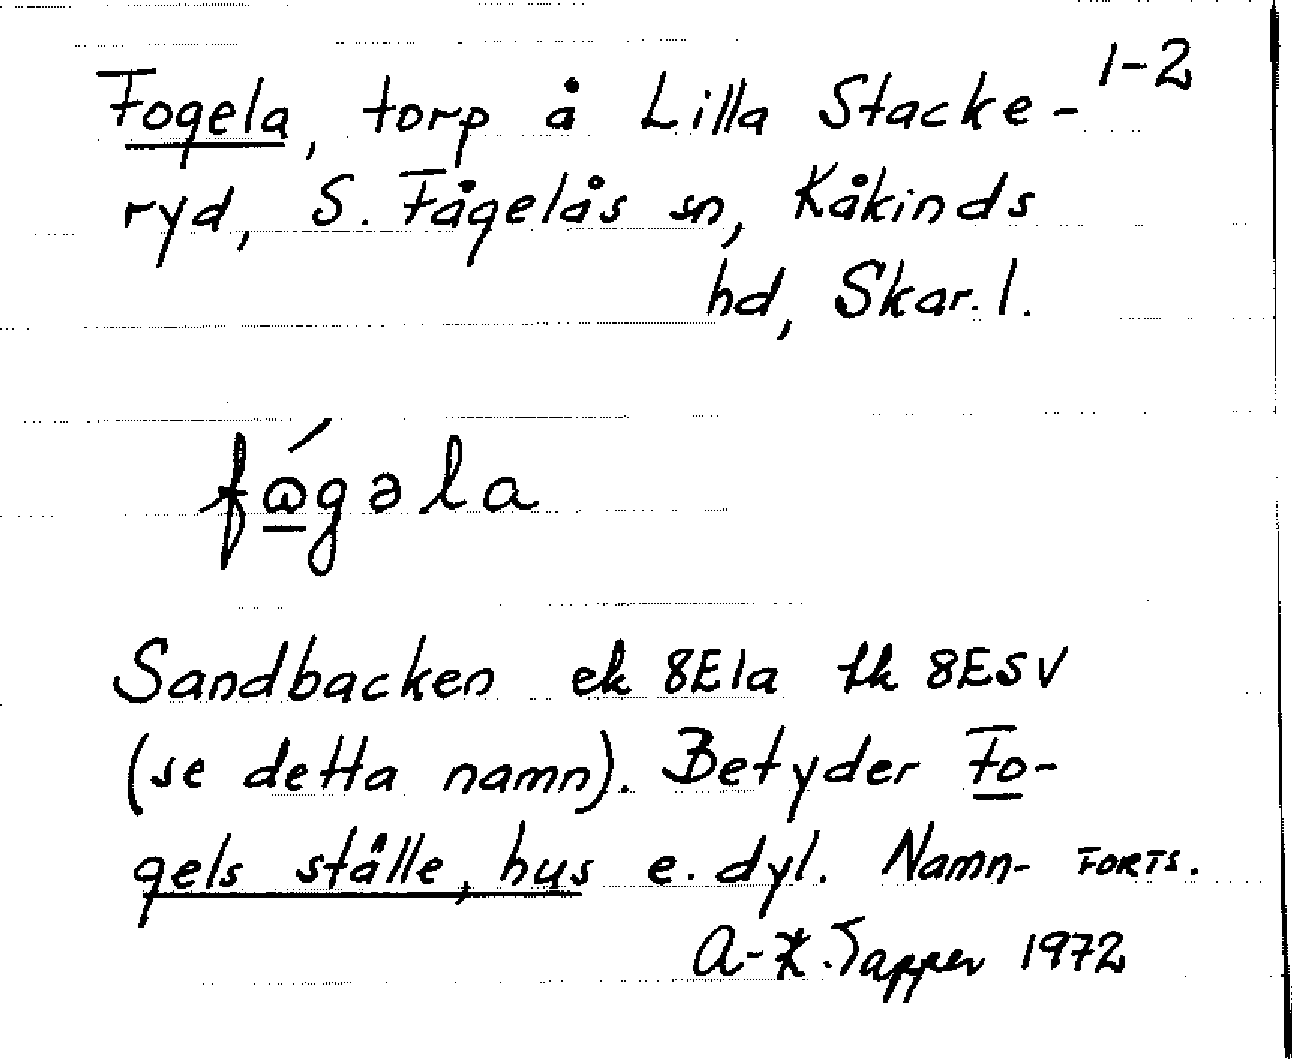 1-2
Fogela, torp å Lilla Stacke-
ryd, S. Fågelås sn, Kåkinds
hd, Skar. l.
fώ̲gəla
Sandbacken ek 8E1a tk 8E5V
(se detta namn). Betyder Fo-
gels ställe, hus e. dyl. Namn- FORTS.
A-K. Tapper 1972